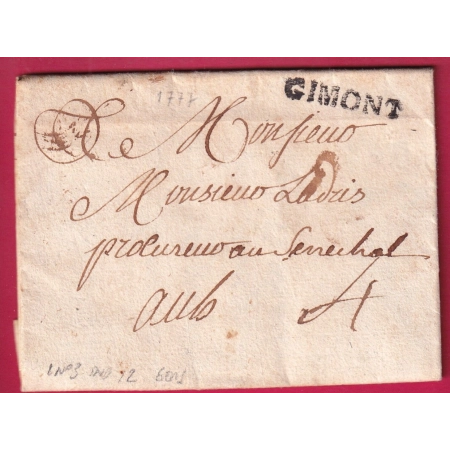 1777
GIMONT
A Monsieur
Monsieur Ladris
procureur au Senechal
auh
4